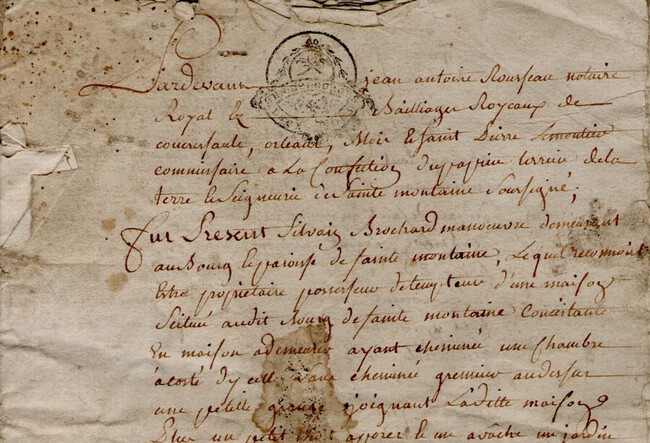 Pardevant jean antoine Rousseau notaire
Royal Bailliages Royaux de
, orleans, Pierre
commissaire a La Confection du papier terrier de la
terre et Seigneurie de Sainte montaine Soussigné;
Fut Present Silvain Brochard manoeuvre demeurant
au Bourg et paroisse de sainte montaine, Lequel reconnoist
Estre propriétaire possesseur detempteur d'une maison
Scituée audit Bourg de sainte montaine Consistante
En maison a demeurer ayant cheminée une Chambre
a costé d'ycelle sans cheminée grenier au dessus
une petitte grange joignant Laditte maison
Plus un petit un jardin